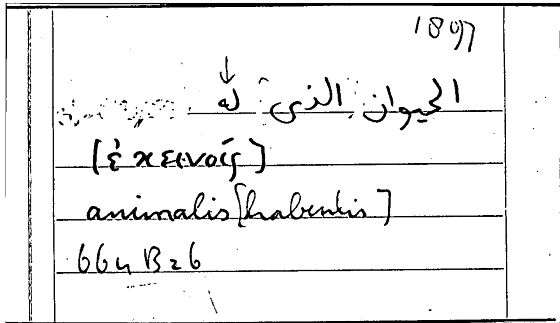 1897
الحيوان الذى له
[ἐκείνοις]
animalis [habentis]
664 B26